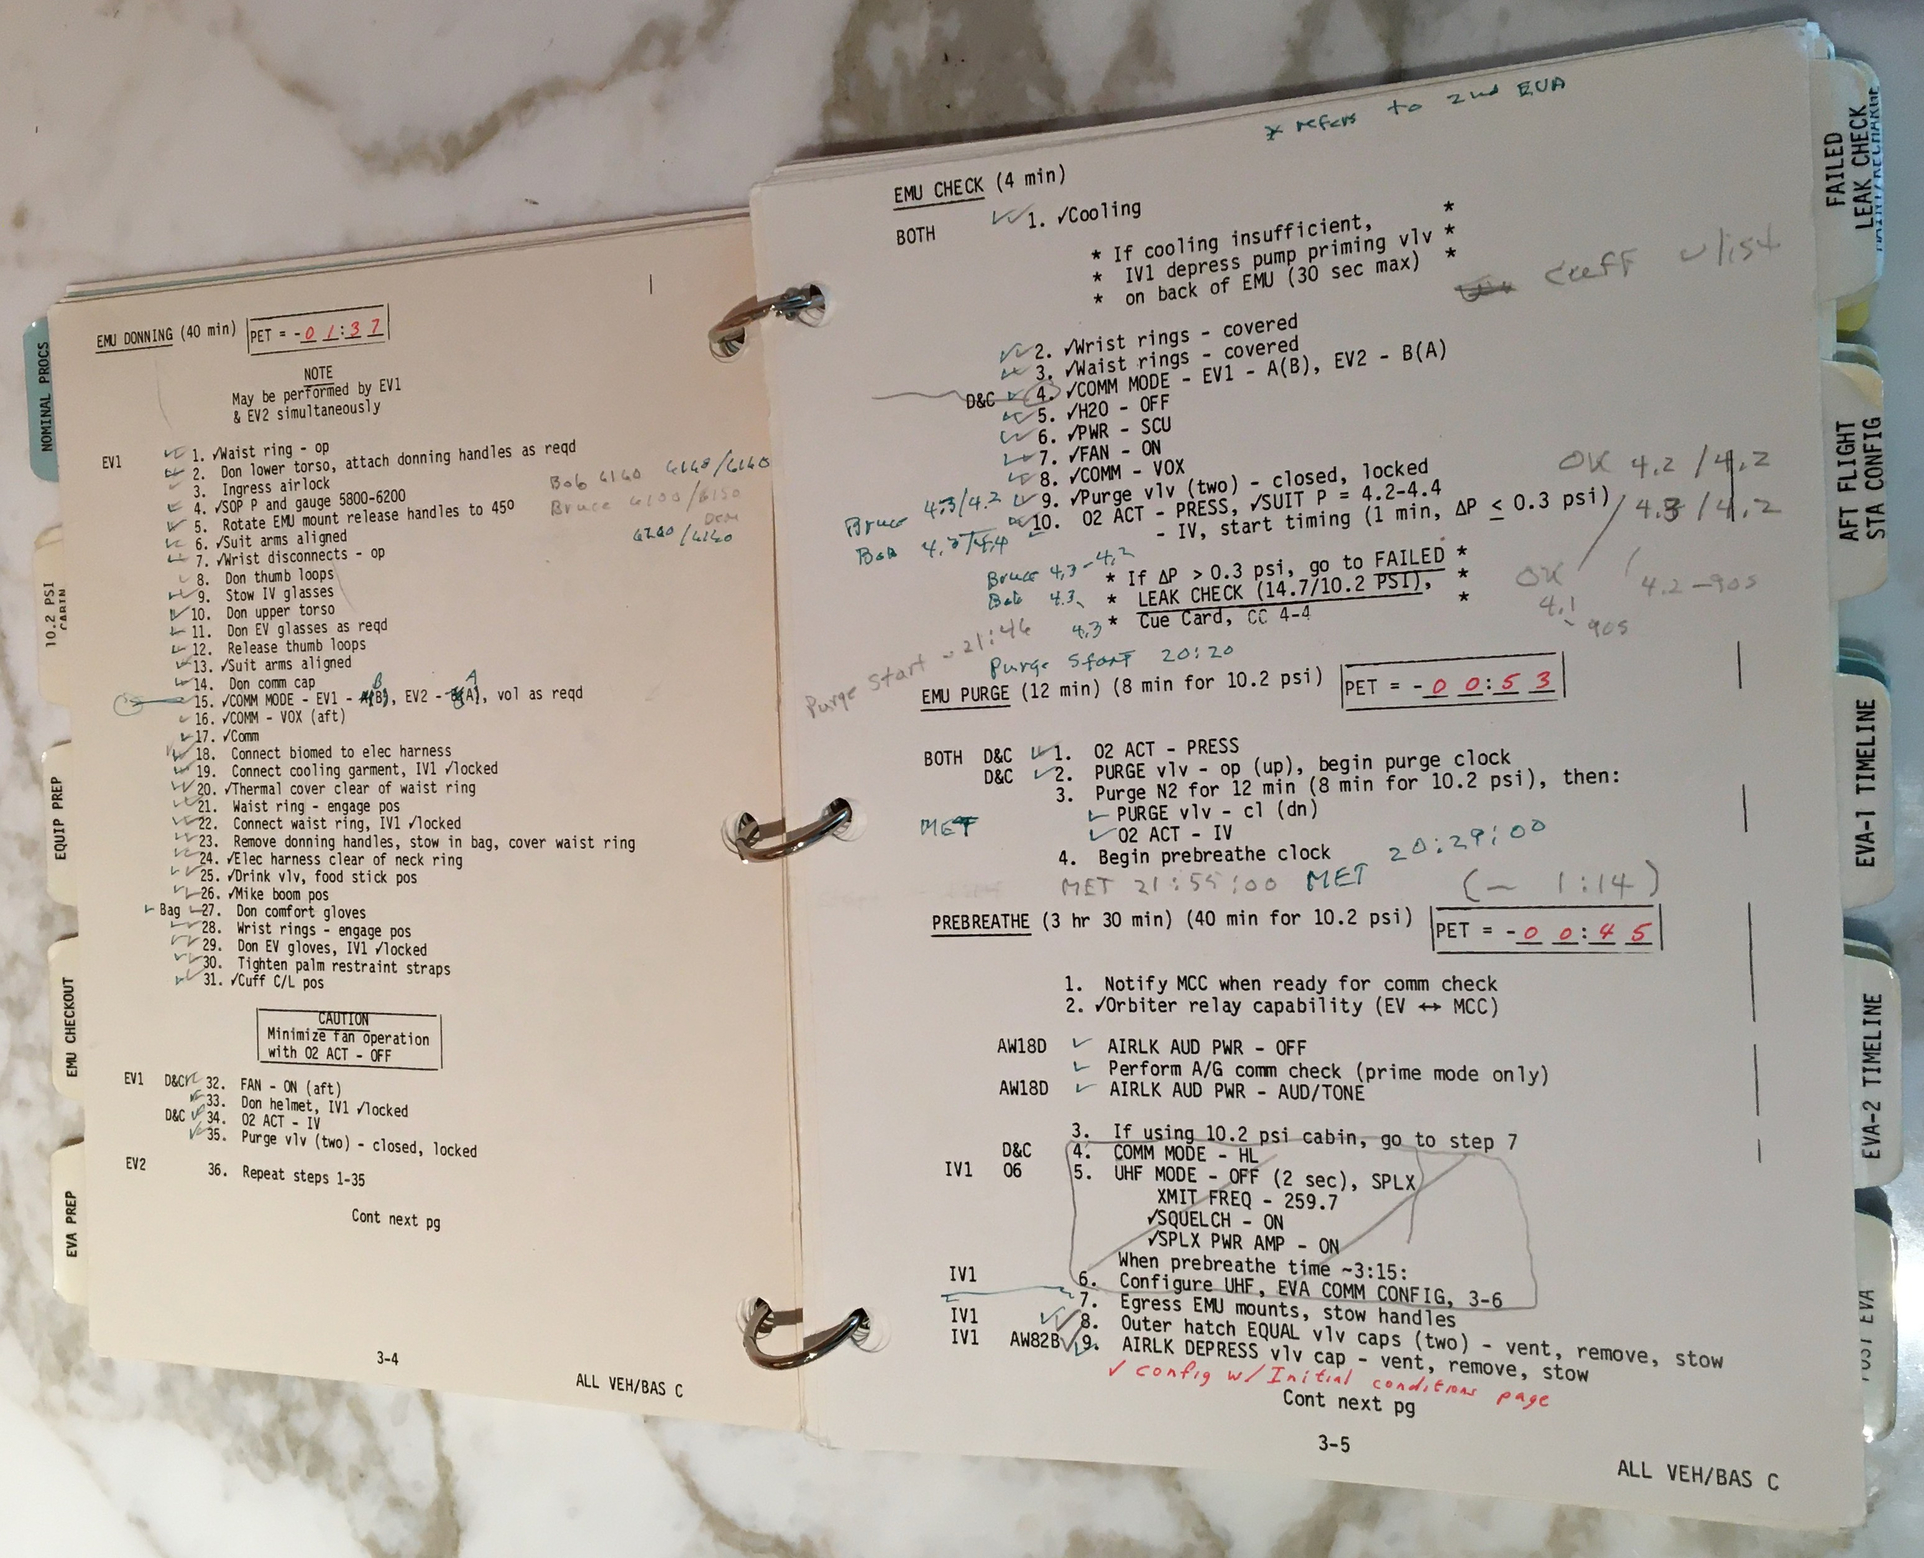 NOMINAL PROCS
10.2 PSI
CABIN
EQUIP PREP
EMU CHECKOUT
EVA PREP
EMU DONNING (40 min) PET = -01:37
NOTE
May be performed by EV1
& EV2 simultaneously
EV1 1. ✓Waist ring - op
2. Don lower torso, attach donning handles as reqd
3. Ingress airlock
4. ✓SOP P and gauge 5800-6200
5. Rotate EMU mount release handles to 45º
6. ✓Suit arms aligned
7. ✓Wrist disconnects - op
8. Don thumb loops
9. Stow IV glasses
10. Don upper torso
11. Don EV glasses as reqd
12. Release thumb loops
13. ✓Suit arms aligned
14. Don comm cap
B A
15. ✓COMM MODE - EV1 - A(B), EV2 - B(A), vol as reqd
16. ✓COMM - VOX (aft)
17. ✓Comm
18. Connect biomed to elec harness
19. Connect cooling garment, IV1 ✓locked
20. ✓Thermal cover clear of waist ring
21. Waist ring - engage pos
22. Connect waist ring, IV1 ✓locked
23. Remove donning handles, stow in bag, cover waist ring
24. ✓Elec harness clear of neck ring
25. ✓Drink vlv, food stick pos
26. ✓Mike boom pos
Bag 27. Don comfort gloves
28. Wrist rings - engage pos
29. Don EV gloves, IV1 ✓locked
30. Tighten palm restraint straps
31. ✓Cuff C/L pos
Bob 6140 6140/6140
Bruce 6100/6150
6240/6140
CAUTION
Minimize fan operation
with O2 ACT - OFF
EV1 D&C 32. FAN - ON (aft)
33. Don helmet, IV1 ✓locked
D&C 34. O2 ACT - IV
35. Purge vlv (two) - closed, locked
EV2 36. Repeat steps 1-35
Cont next pg
3-4
ALL VEH/BAS C
* refers to 2nd EVA
EMU CHECK (4 min)
BOTH 1. ✓Cooling
* If cooling insufficient, *
* IV1 depress pump priming vlv *
* on back of EMU (30 sec max) *
Cuff ✓list
2. ✓Wrist rings - covered
3. ✓Waist rings - covered
D&C 4. ✓COMM MODE - EV1 - A(B), EV2 - B(A)
5. ✓H2O - OFF
6. ✓PWR - SCU
7. ✓FAN - ON
8. ✓COMM - VOX
9. ✓Purge vlv (two) - closed, locked
10. O2 ACT - PRESS, ✓SUIT P = 4.2-4.4
- IV, start timing (1 min, ΔP ≤ 0.3 psi)
Bruce 4.3/4.2
Bob 4.3/4.4
OK 4.2/4.2
4.3/4.2
Bruce 4.3-4.2
Bob 4.3
4.3
* If ΔP > 0.3 psi, go to FAILED *
* LEAK CHECK (14.7/10.2 PSI), *
* Cue Card, CC 4-4 *
OK
4.1
- 90s
4.2 - 90s
Purge start - 21:46
Purge start 20:20
EMU PURGE (12 min) (8 min for 10.2 psi) PET = -00:53
BOTH D&C 1. O2 ACT - PRESS
D&C 2. PURGE vlv - op (up), begin purge clock
3. Purge N2 for 12 min (8 min for 10.2 psi), then:
PURGE vlv - cl (dn)
MET O2 ACT - IV
4. Begin prebreathe clock 20:29:00
MET 21:55:00 MET (- 1:14)
PREBREATHE (3 hr 30 min) (40 min for 10.2 psi) PET = -00:45
1. Notify MCC when ready for comm check
2. ✓Orbiter relay capability (EV ↔ MCC)
AW18D AIRLK AUD PWR - OFF
Perform A/G comm check (prime mode only)
AW18D AIRLK AUD PWR - AUD/TONE
3. If using 10.2 psi cabin, go to step 7
D&C 4. COMM MODE - HL
IV1 O6 5. UHF MODE - OFF (2 sec), SPLX
XMIT FREQ - 259.7
✓SQUELCH - ON
✓SPLX PWR AMP - ON
When prebreathe time ~3:15:
IV1 6. Configure UHF, EVA COMM CONFIG, 3-6
7. Egress EMU mounts, stow handles
IV1 8. Outer hatch EQUAL vlv caps (two) - vent, remove, stow
IV1 AW82B 9. AIRLK DEPRESS vlv cap - vent, remove, stow
✓ config w/Initial conditions page
Cont next pg
3-5
ALL VEH/BAS C
FAILED
LEAK CHECK
MAINT/RECHARGE
AFT FLIGHT
STA CONFIG
EVA-1 TIMELINE
EVA-2 TIMELINE
POST EVA